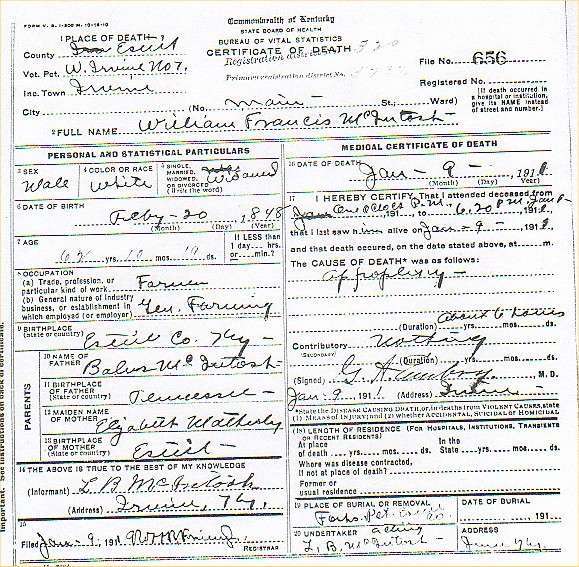 FORM V. S. 1-200 M. 10-18-10
Commonwealth of Kentucky
STATE BOARD OF HEALTH
BUREAU OF VITAL STATISTICS
CERTIFICATE OF DEATH
1 PLACE OF DEATH
County Estill
Registration district No. 320
File No. 656
Vot. Pct. W. Irvine No 1.
Primary registration district No.
Registered No.
Inc. Town Irvine
[If death occurred in a hospital or institution, give its NAME instead of street and number.]
City (No. main St.; Ward)
2 FULL NAME William Francis McIntosh
PERSONAL AND STATISTICAL PARTICULARS
3 SEX Male
4 COLOR OR RACE White
5 SINGLE, MARRIED, WIDOWED, OR DIVORCED (Write the word) Widowed
6 DATE OF BIRTH
Feby - 20 1848
(Month) (Day) (Year)
7 AGE
62 yrs. 10 mos. 19 ds.
If LESS than 1 day, hrs. or min.?
8 OCCUPATION
(a) Trade, profession, or particular kind of work Farmer
(b) General nature of industry business, or establishment in which employed (or employer) Gen. Farming
9 BIRTHPLACE
(State or country) Estill Co. Ky -
PARENTS
10 NAME OF FATHER Balus McIntosh
11 BIRTHPLACE OF FATHER (State or country) Tennessee
12 MAIDEN NAME OF MOTHER Elizabeth
13 BIRTHPLACE OF MOTHER (State or country) Estill -
14 THE ABOVE IS TRUE TO THE BEST OF MY KNOWLEDGE
(Informant) L B McIntosh
(Address) Irvine, Ky.
15
Filed Jan - 9 -, 1911
REGISTRAR
MEDICAL CERTIFICATE OF DEATH
16 DATE OF DEATH
Jan - 9 -, 1911
(Month) (Day) (Year)
17 I HEREBY CERTIFY, That I attended deceased from
One o'clock P.M., 191 , to 6.20 P.M. Jan 9, 1911,
that I last saw him alive on Jan - 9 -, 1911,
and that death occurred, on the date stated above, at m.
The CAUSE OF DEATH* was as follows:
Apoplexy -
about 6 hours
(Duration) yrs. mos. ds.
Contributory Nothing
(SECONDARY)
(Duration) yrs. mos. ds.
(Signed) M. D.
Jan. 9, 1911 (Address) Irvine
*State the DISEASE CAUSING DEATH, or, in deaths from VIOLENT CAUSES, state (1) MEANS OF INJURY; and (2) whether ACCIDENTAL, SUICIDAL OR HOMICIDAL
(18) LENGTH OF RESIDENCE (FOR HOSPITALS, INSTITUTIONS, TRANSIENTS OR RECENT RESIDENTS)
At place of death yrs. mos. ds. In the State yrs. mos. ds.
Where was disease contracted, if not at place of death?
Former or usual residence
19 PLACE OF BURIAL OR REMOVAL
DATE OF BURIAL
, 191
20 UNDERTAKER acting
L. B. McIntosh
ADDRESS
Irvine Ky.
Important. See instructions on back of certificate.